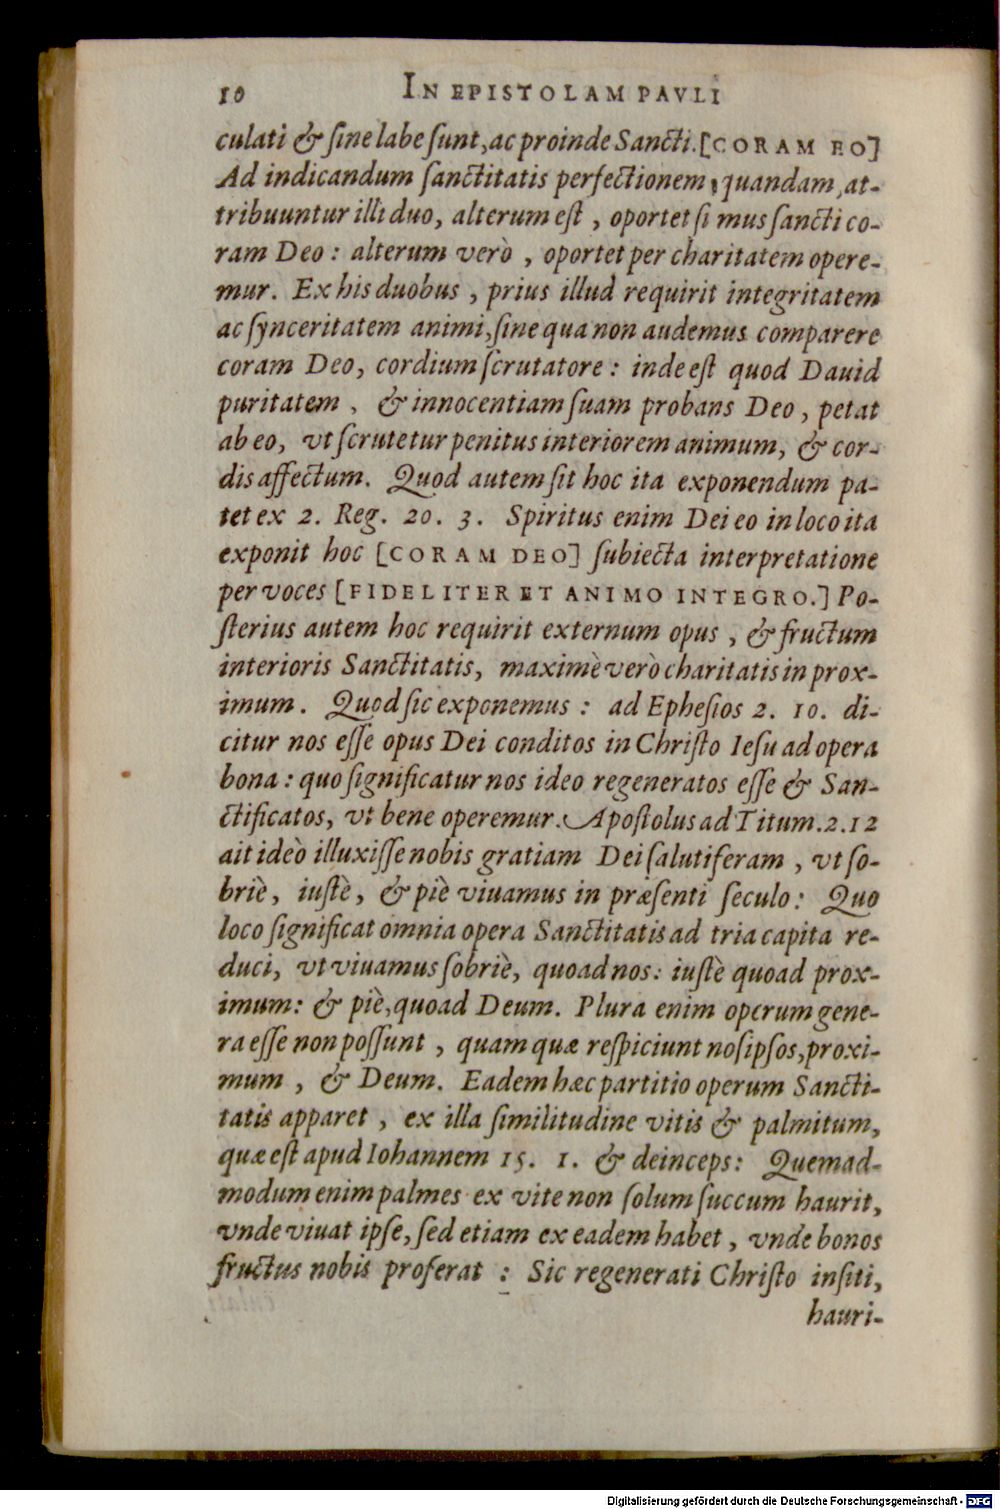 10 IN EPISTOLAM PAVLI
culati & ſine labe ſunt, ac proinde Sancti. [CORAM EO]
Ad indicandum ſanctitatis perfectionem, quandam, at-
tribuuntur illi duo, alterum eſt, oportet ſimus ſancti co-
ram Deo: alterum verò, oportet per charitatem opere-
mur. Ex his duobus, prius illud requirit integritatem
ac ſynceritatem animi, ſine qua non audemus comparere
coram Deo, cordium ſcrutatore: inde eſt quod Dauid
puritatem, & innocentiam ſuam probans Deo, petat
ab eo, vt ſcrutetur penitus interiorem animum, & cor-
dis affectum. Quod autem ſit hoc ita exponendum pa-
tet ex 2. Reg. 20. 3. Spiritus enim Dei eo in loco ita
exponit hoc [CORAM DEO] ſubiecta interpretatione
per voces [FIDELITER ET ANIMO INTEGRO.] Po-
ſterius autem hoc requirit externum opus, & fructum
interioris Sanctitatis, maximè verò charitatis in prox-
imum. Quod ſic exponemus: ad Epheſios 2. 10. di-
citur nos eſſe opus Dei conditos in Chriſto Ieſu ad opera
bona: quo ſignificatur nos ideo regeneratos eſſe & San-
ctificatos, vt bene operemur. Apoſtolus ad Titum. 2. 12
ait ideò illuxiſſe nobis gratiam Dei ſalutiferam, vt ſo-
briè, iuſtè, & piè viuamus in præſenti ſeculo: Quo
loco ſignificat omnia opera Sanctitatis ad tria capita re-
duci, vt viuamus ſobriè, quoad nos: iuſtè quoad prox-
imum: & piè, quoad Deum. Plura enim operum gene-
ra eſſe non poſſunt, quam quæ reſpiciunt noſipſos, proxi-
mum, & Deum. Eadem hæc partitio operum Sancti-
tatis apparet, ex illa ſimilitudine vitis & palmitum,
quæ eſt apud Iohannem 15. 1. & deinceps: Quemad-
modum enim palmes ex vite non ſolum ſuccum haurit,
vnde viuat ipſe, ſed etiam ex eadem habet, vnde bonos
fructus nobis proferat: Sic regenerati Chriſto inſiti,
hauri-
Digitalisierung gefördert durch die Deutsche Forschungsgemeinschaft - DFG